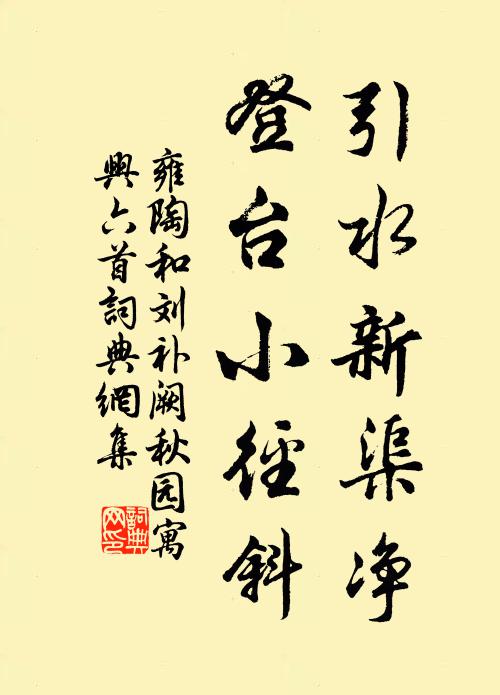 引水新渠净
登台小徑斜
雍陶和刘补阙秋园寓
興六首詞典網集
詞典网印